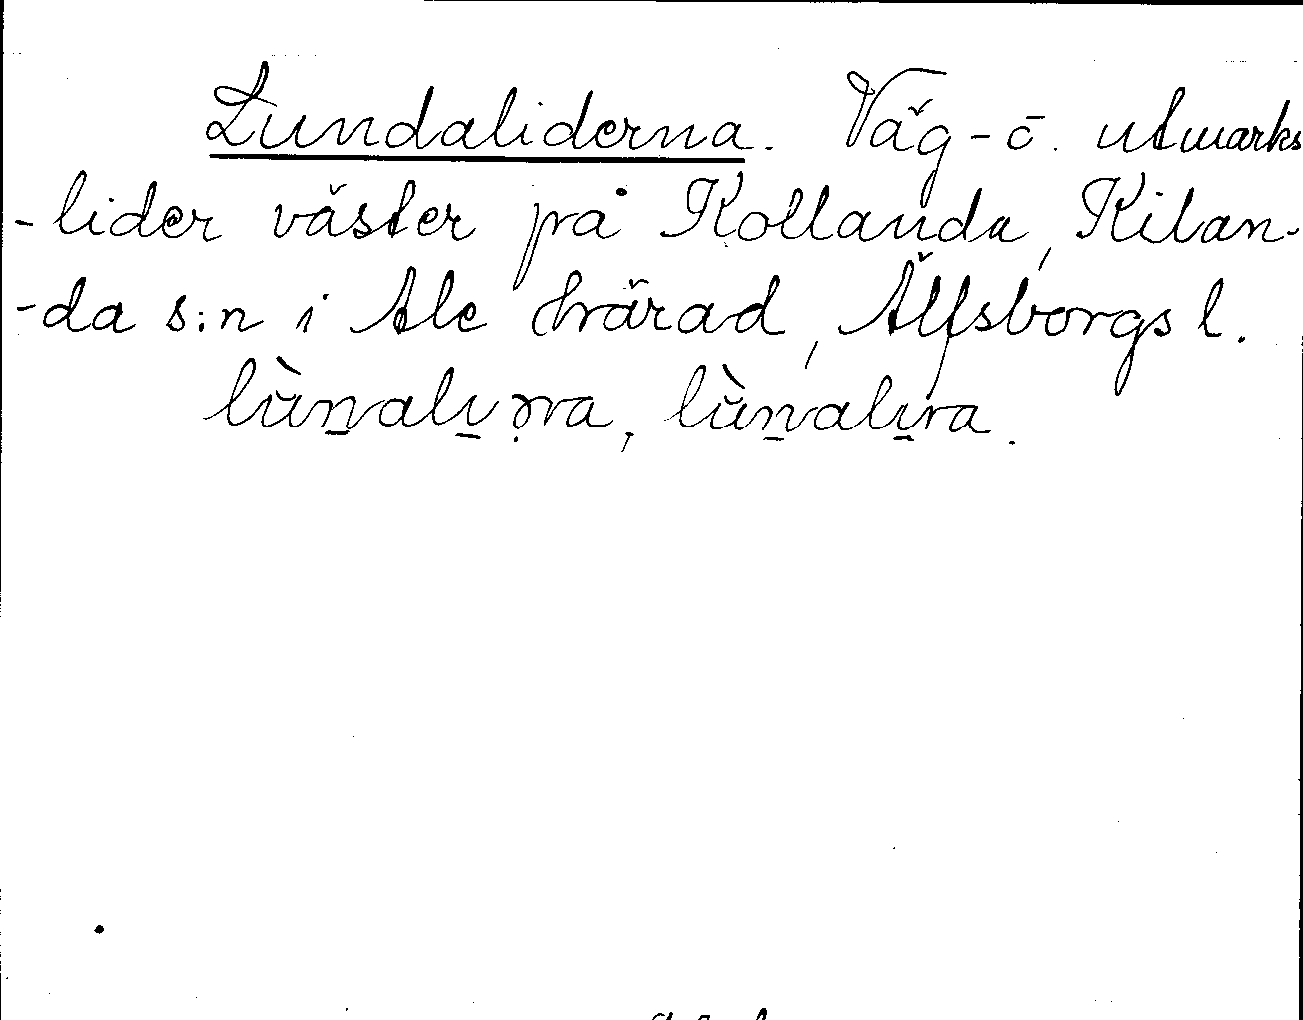 Lundaliderna. Väg- o. utmarks
-lider väster på Kollanda, Kilan-
-da s:n i Ale härad, Älfsborgs l.